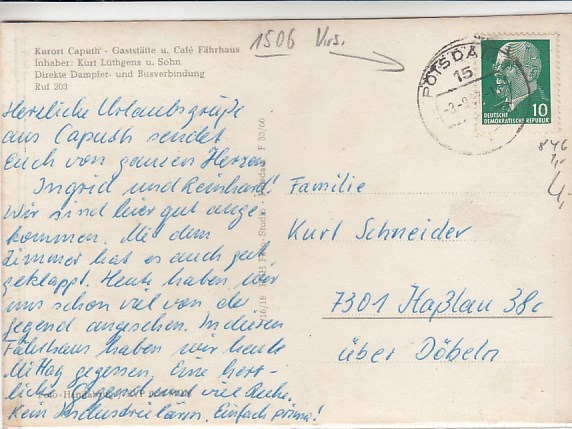 Kurort Caputh - Gaststätte u. Café Fährhaus
Inhaber: Kurt Lüthgens u. Sohn
Direkte Dampfer- und Busverbindung
Ruf 203
1506 Vs.
POTSDA
15
DEUTSCHE
DEMOKRATISCHE REPUBLIK
10
846
4,-
Herzliche Urlaubsgrüße
aus Caputh sendet
Euch von ganzen Herzen
Ingrid und Reinhard!
Wir sind hier gut ange
kommen. Mit dem
Zimmer hat es auch gut
geklappt. Heute haben wir
uns schon viel von der
Gegend angesehen. In diesem
Fährhaus haben wir heute
Mittag gegessen. Eine herr-
liche Gegend und viel Ruhe.
Kein Industrielärm. Einfach prima!
Foto-Handabzug
F 33/66
Familie
Kurt Schneider
7301 Haßlau 38c
über Döbeln